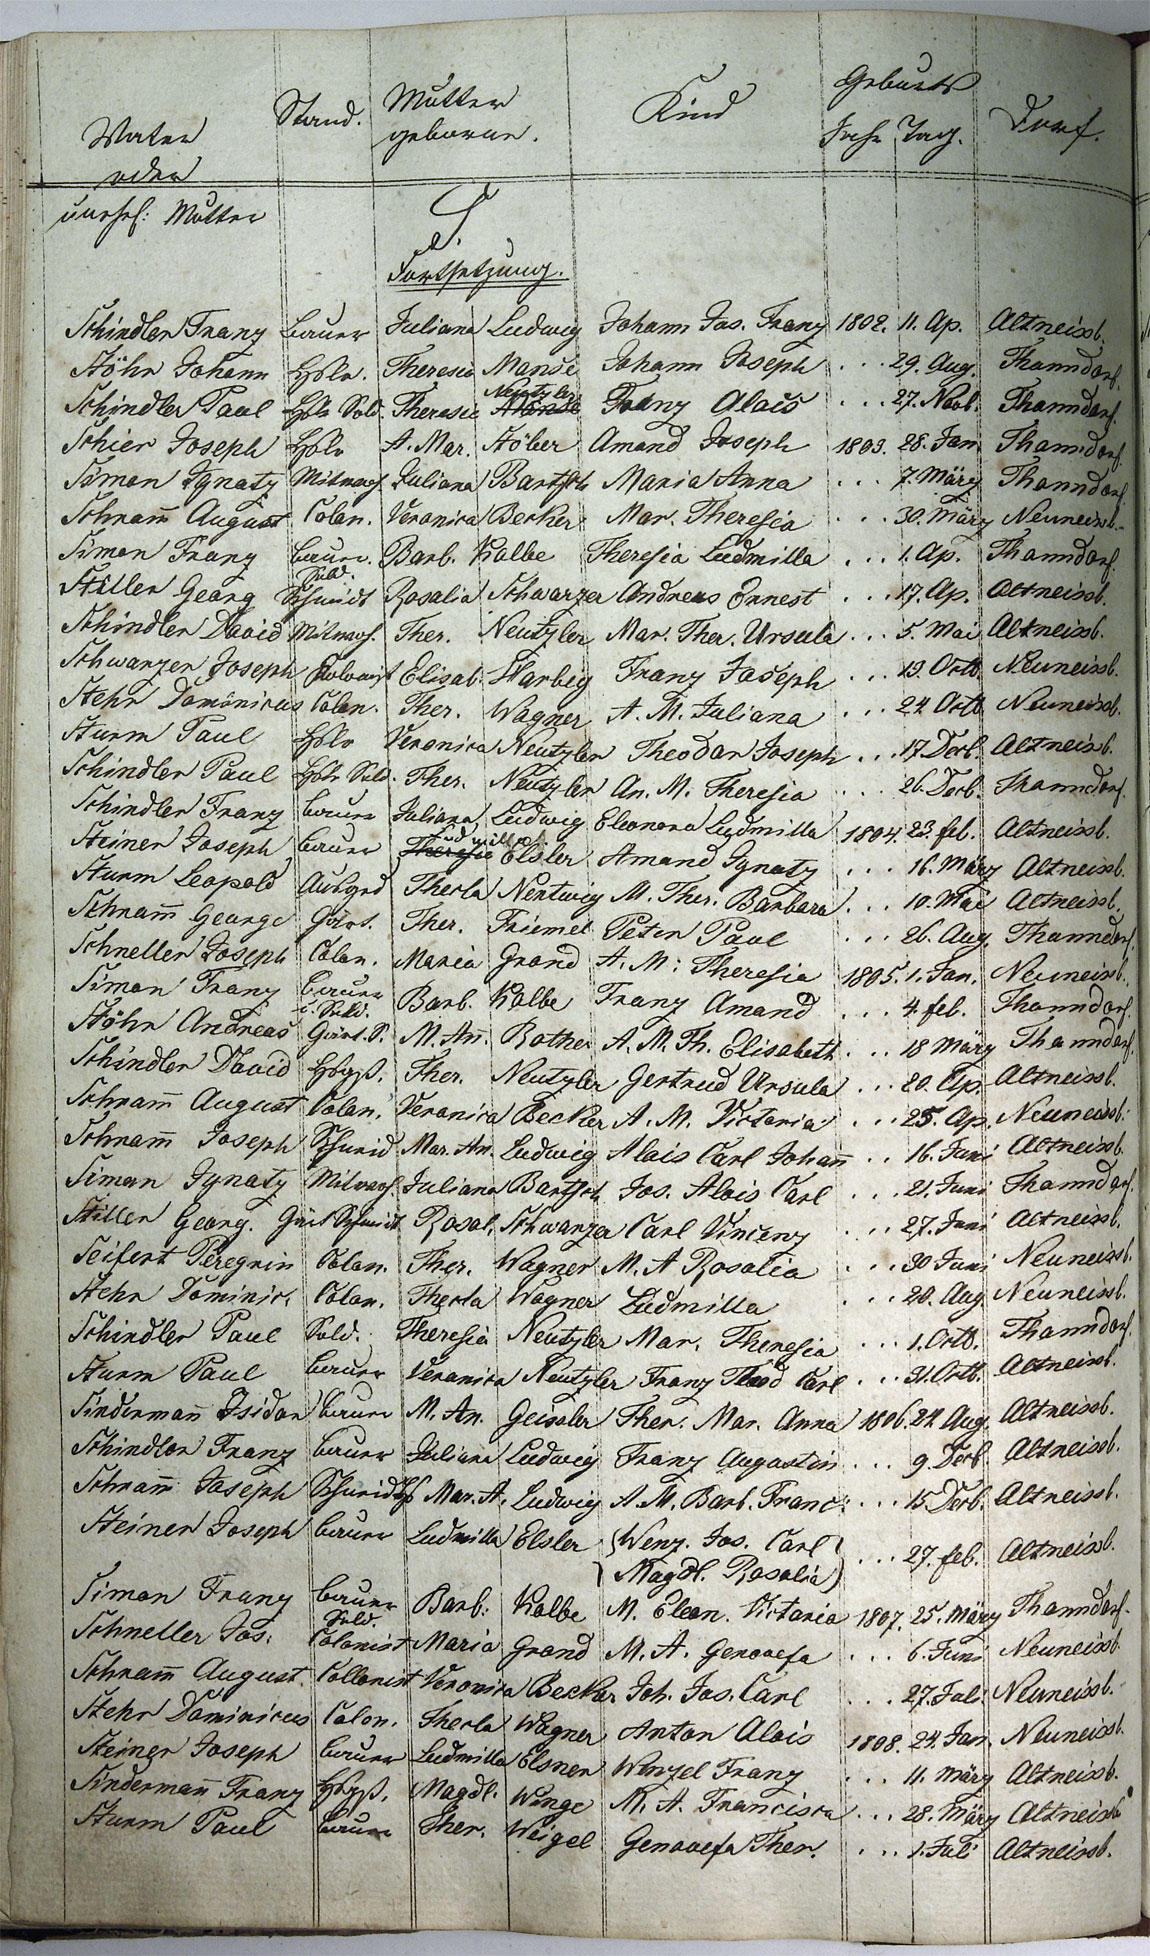 Vater
oder
unehl: Mutter
Stand.
Mutter
geborne.
Kind
Geburts
Jahr Tag.
Dorf.
S.
Fortsetzung.
Schindler Franz Bauer Juliana Ludwig Johann Jos. Franz 1802. 11. Ap. Altneissb.
Stöhr Johann Hslr. Theresia Manse Johann Joseph ... 29. Aug. Thanndorf.
Schindler Paul Hslr Sold. Theresia Neutzler Franz Alois ... 27. Novb. Thanndorf.
Schier Joseph Hslr A. Mar. Stöber Amand Joseph 1803. 28. Jan Thanndorf.
Simon Ignatz Mitwoh. Juliana Bartsch Maria Anna ... 7. März Thanndorf.
Schram̄ August Colon. Veronica Becker Mar. Theresia ... 30. März Neuneissb.
Simon Franz Bauer. Sold. Barb. Kolbe Theresia Ludmilla ... 1. Ap. Thanndorf.
Stiller Georg Schmidt Rosalia Schwarzer Andreas Ernest ... 17. Ap. Altneissb.
Schindler David Mitwoh. Ther. Neutzler Mar. Ther. Ursula ... 5. Mai Altneissb.
Schwarzer Joseph Kolonist Elisab. Harbig Franz Joseph ... 13. Octb. Neuneissb.
Stehr Dominicus Colon. Ther. Wagner A. M. Juliana ... 24 Octb. Neuneissb.
Sturm Paul Hslr Veronica Neutzler Theodor Joseph ... 17 Decb. Altneissb.
Schindler Paul Hslr Sold. Ther. Neutzler An. M. Theresia ... 26. Decb. Thanndorf.
Schindler Franz Bauer Juliana Ludwig Eleonora Ludmilla 1804. 23. feb. Altneissb.
Steiner Joseph Bauer Ludmilla Theresia Elsler Amand Ignatz ... 16. März Altneissb.
Sturm Leopold Ausged Thecla Nentwig M. Ther. Barbara ... 10. Mai Altneissb.
Schram̄ George Gärt. Ther. Friemel Peter Paul ... 26. Aug. Thanndorf.
Schneller Joseph Colon. Maria Grond A. M: Theresia 1805. 1. Jan. Neuneissb.
Simon Franz Bauer u. Sold. Barb. Kolbe Franz Amand ... 4. feb. Thanndorf.
Stöhr Andreas Gärt. S. M. An̄. Rother A. M. Th. Elisabeth ... 18 März Thanndorf.
Schindler David Hbgß. Ther. Neutzler Gertrud Ursula ... 20. Ap. Altneissb.
Schram̄ August Colon. Veronica Becker A. M. Victoria ... 25. Ap. Neuneissb.
Schram̄ Joseph Schmid Mar. An. Ludwig Alois Carl Johan̄ .. 16. Juni Altneissb.
Simon Ignatz Mitwoh. Juliana Bartsch Jos. Alois Carl ... 21. Juni Thanndorf.
Stiller Georg. Gärt Schmidt Rosal. Schwarzer Carl Vincenz ... 27. Juni Altneissb.
Seifert Peregrin Colon. Ther. Wagner M. A Rosalia ... 30 Juni Neuneissb.
Stehr Dominic. Colon. Thecla Wagner Ludmilla ... 20. Aug. Neuneissb.
Schindler Paul Sold. Theresia Neutzler Mar. Theresia ... 1. Octb. Thanndorf.
Sturm Paul Bauer Veronica Neutzler Franz Theod Carl ... 31. Octb. Altneissb.
Sinderman̄ Isidor Bauer M. An. Geissler Ther. Mar. Anna 1806. 24. Aug. Altneissb.
Schindler Franz Bauer Juliana Ludwig Franz Augustin ... 9. Decb. Altneissb.
Schram̄ Joseph Schmid Mar. A. Ludwig A. M. Barb. Franc: ... 15. Decb. Altneissb.
Steiner Joseph Bauer Ludmilla Elsler {Wenz. Jos. Carl
Magdl. Rosalia} ... 27. feb. Altneissb.
Simon Franz Bauer Sold. Barb: Kolbe M. Eleon. Victoria 1807. 25. März Thanndorf.
Schneller Jos. Colonist Maria Grond M. A. Genovefa ... 6. Juni Neuneissb.
Schram̄ August. Collonist Veronica Becker Joh. Jos. Carl ... 27. Juli Neuneissb.
Stehr Dominicus Colon. Thecla Wagner Anton Alois 1808. 24. Jan. Neuneissb.
Steiner Joseph Bauer Ludmilla Elsner Wenzel Franz ... 11. März Altneissb.
Sinderman̄ Franz Hbgß. Magdl. Winge M. A. Francisca ... 28. März Altneissb
Sturm Paul Bauer Ther. Weigel Genovefa Ther. ... 1. Juli Altneissb.